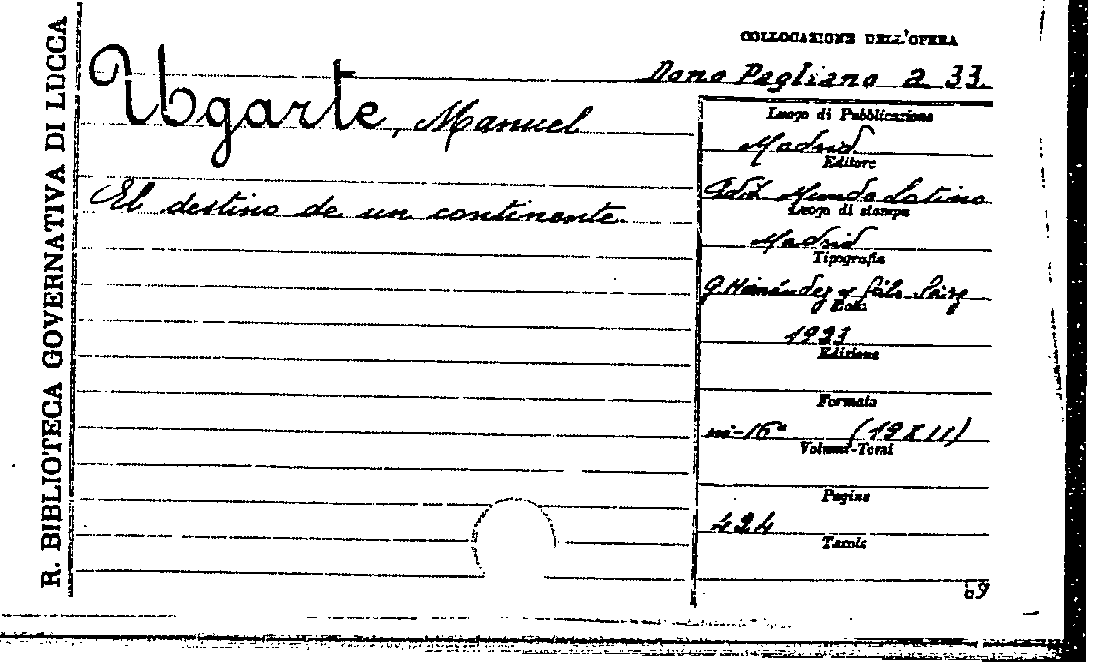 R. BIBLIOTECA GOVERNATIVA DI LUCCA
COLLOCAZIONE DELL'OPERA
Dono Pagliano a 33.
Ugarte, Manuel
El destino de un continente.
Luogo di Pubblicazione
Madrid
Editore
Edit Mundo Latino
Luogo di stampa
Madrid
Tipografia
G. Hernández y
Data
1923
Edizione
Formato
in-16° (19X11)
Volumi-Tomi
Pagine
424
Tavole